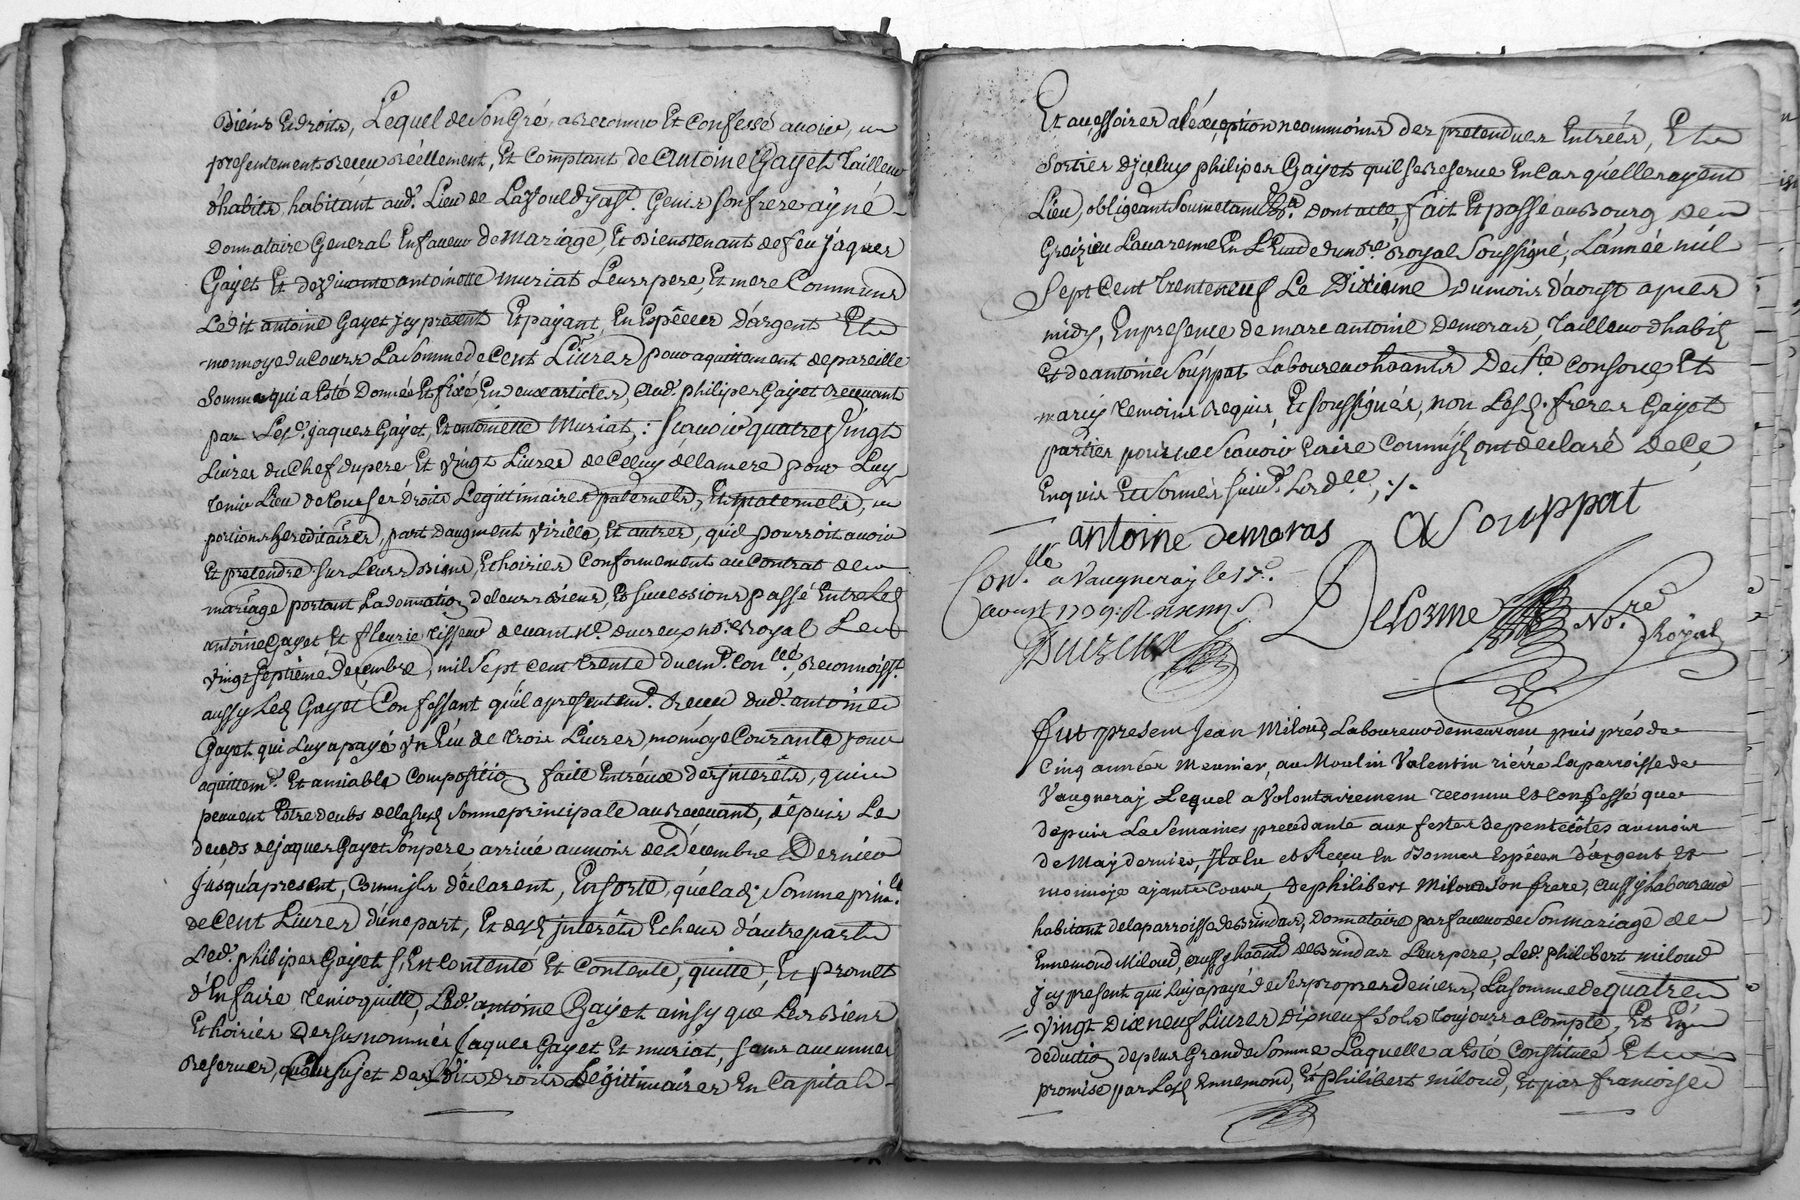 Biens et droits, Lequel de Son Gré, a Reconnu Et Confessé avoir, eu
presentement Receu Réellement, Et Comptant de Antoine Gayet Tailleur
d'habits, habitant aud. Lieu de St. Genis Son frere ayné
Donnataire General En faveur de Mariage, Et Bienstenant de feu Jaques
Gayet Et de antoinette Muriat Leurs pere, Et mere Communs
Ledit antoine Gayet jcy present Et payant, En Espêces D'argent Et
monnoye du Cours La Somme de Cent Livres pour aquittament de pareille
Somme qui a Esté Donnée Et fixé, En deux articles, aud. philipes Gayet Recevant
par Lesd. jaques Gayet, Et antoinette Muriat, : Sçavoir quatre Vingt
Livres du Chef du pere Et Vingt Livres de Celuy de la mere pour Luy
tenir Lieu de tous Ses droits Legitimaires paternels, Et maternels,
portions hereditaires, part d'augment Virille, Et autres, qu'il pourroit avoir
Et pretendre Sur Leurs Biens, Et hoiries Conformement au Contrat de
mariage portant La donnatio de leurs Biens, Et Successions passé Entre Led
antoine Gayet Et fleurie tisseur devant Me. ducreux no.re Royal Le
Vingt Septieme decembre, mil Sept Cent trente duem. Con.llé, Reconnoiss.
aussy Led Gayet Confessant qu'il a presentem. Receu dud. antoine
Gayet qui Luy a payé Un Ecu de trois Livres, monnoye Courante pour
aquittem. Et amiable Compositio faitte Entréux des jnterêts, qui
peuvent Estre deubs de la Susd Somme principale au Recevant, dêpuis Le
decéds de jaques Gayet Son pere arrivé au mois de Décembre Dernier
jusqu'apresent, Comm'jls dêclarent, En Sorte, que lad. Somme prin.le
de Cent Livres d'une part, Et desd jnterêts Echeus d'autre part
Led. philipes Gayet S'En Contenté Et Contente, quitte, Et promet
d'En faire tenir quitte, Led. antoine Gayet ainsy que Les Biens
Et hoiries Dessus nommés Jaques Gayet Et muriat, Sans aucunnes
Reserves, au Sujet Desdits droits Legittimaires En Capital
Et accessoires a l'éxception neanmoins des pretendues Entrées, Et
Sorties d'jceluy philipes Gayet qu'il Se Reserve En Cas qu'elles ayent
Lieu, obligeant Soumetant &a. Dont acte, fait Et passé au Bourg de
Greizieu Lavarenne En L'Etude du no.re Royal Soussigné, L'année mil
Sept Cent trente neuf Le Dixieme du mois d'aoust apres
midy, En presence de marc antoine Demoras, tailleur d'habits
Et de antoine Souppat Laboureur h.ants De S.te Consorce, Et
marcy temoins Requis, Et Soussignés, non Lesd. freres Gayet
parties pour ne Sçavoir Ecrire Comm'jls ont declaré De Ce
Enquis Et Sommés Suiv. L'ord.ce, ./.
antoine demoras A Souppat
Con.llé a Vaugneray le 17e.
aoust 1739.
Ducreux
Delorme No.re Royal
fut present Jean Miloud Laboureur demeurant puis prés de
Cinq années Meunier, au Moulin Valentin riére la parroisse de
Vaugneray Lequel a Volontairement reconnu et confessé que
depuis La Semaines precedante aux festes de pentecôtes au mois
de May dernier, Il a Eu et Reçu En Bonnes Espêces d'argent et
monnoye ajant Cours, de philibert Miloud Son frere, aussy Laboureur
habitant de la parroisse de Brindas, Donnataire par faveur de Son mariage de
Ennemond Miloud, aussy h.ant de Brindas Leur pere, Led. philibert miloud
Jcy present qui Luy a payé de Ses propres deniers, La Somme de quatre
Vingt Dixneuf Livres Dixneuf Sols toujours a Compte, Et En
deductio de plus Grande Somme Laquelle a Esté Constituée Et
promise par Lesd Ennemond, Et philibert miloud, Et par francoise